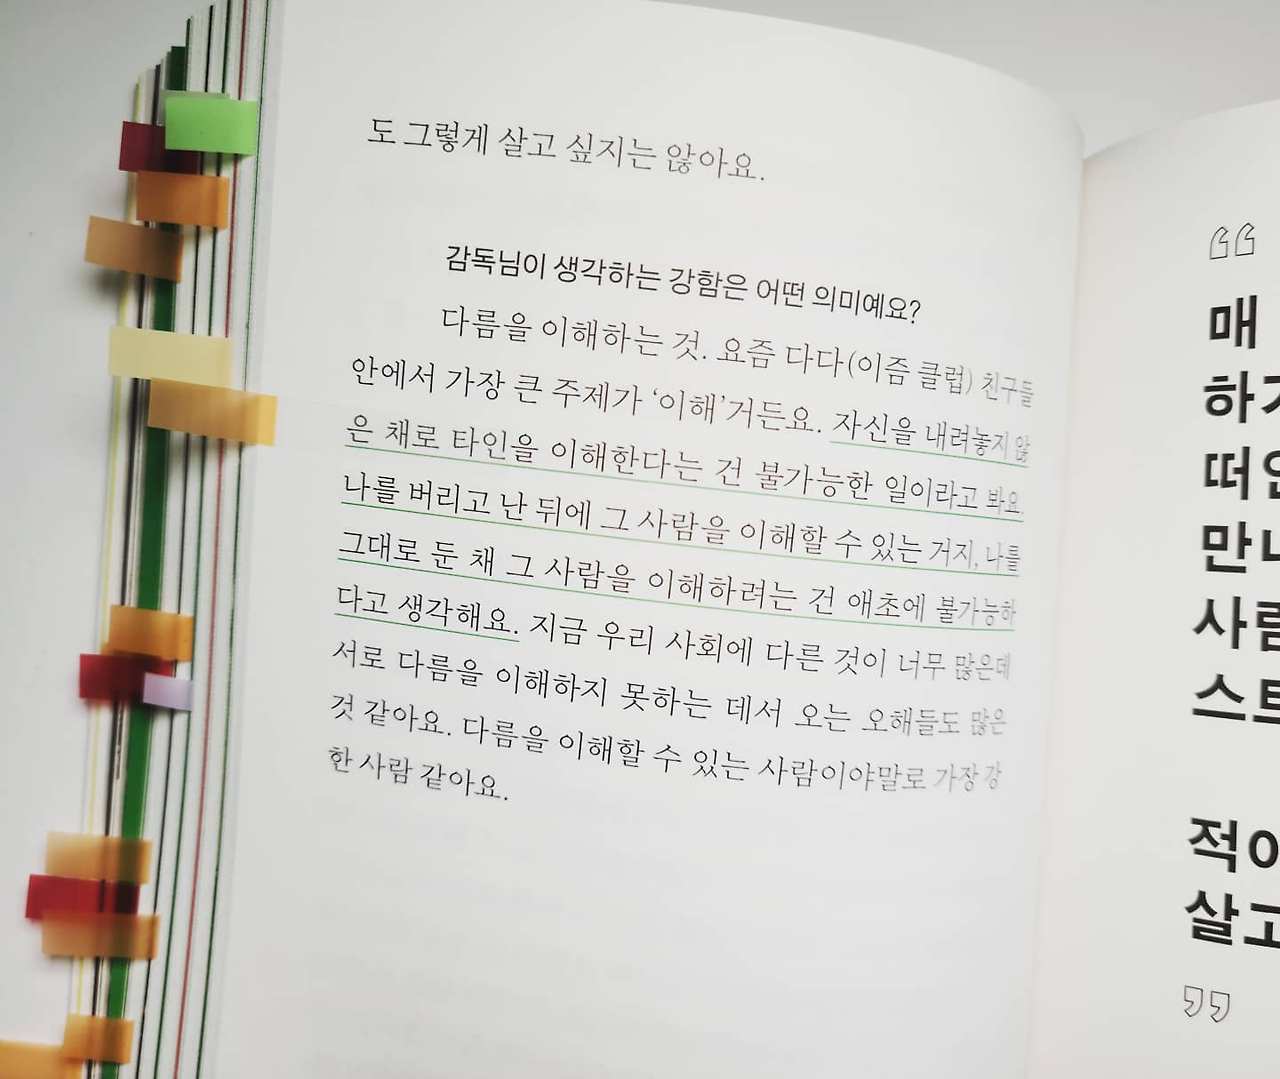 도 그렇게 살고 싶지는 않아요.
감독님이 생각하는 강함은 어떤 의미예요?
다름을 이해하는 것. 요즘 다다(이즘 클럽) 친구들
안에서 가장 큰 주제가 ‘이해’거든요. 자신을 내려놓지 않
은 채로 타인을 이해한다는 건 불가능한 일이라고 봐요.
나를 버리고 난 뒤에 그 사람을 이해할 수 있는 거지, 나를
그대로 둔 채 그 사람을 이해하려는 건 애초에 불가능하
다고 생각해요. 지금 우리 사회에 다른 것이 너무 많은데
서로 다름을 이해하지 못하는 데서 오는 오해들도 많은
것 같아요. 다름을 이해할 수 있는 사람이야말로 가장 강
한 사람 같아요.
“
매
하
떠
만
사람
스트
적
살고
”